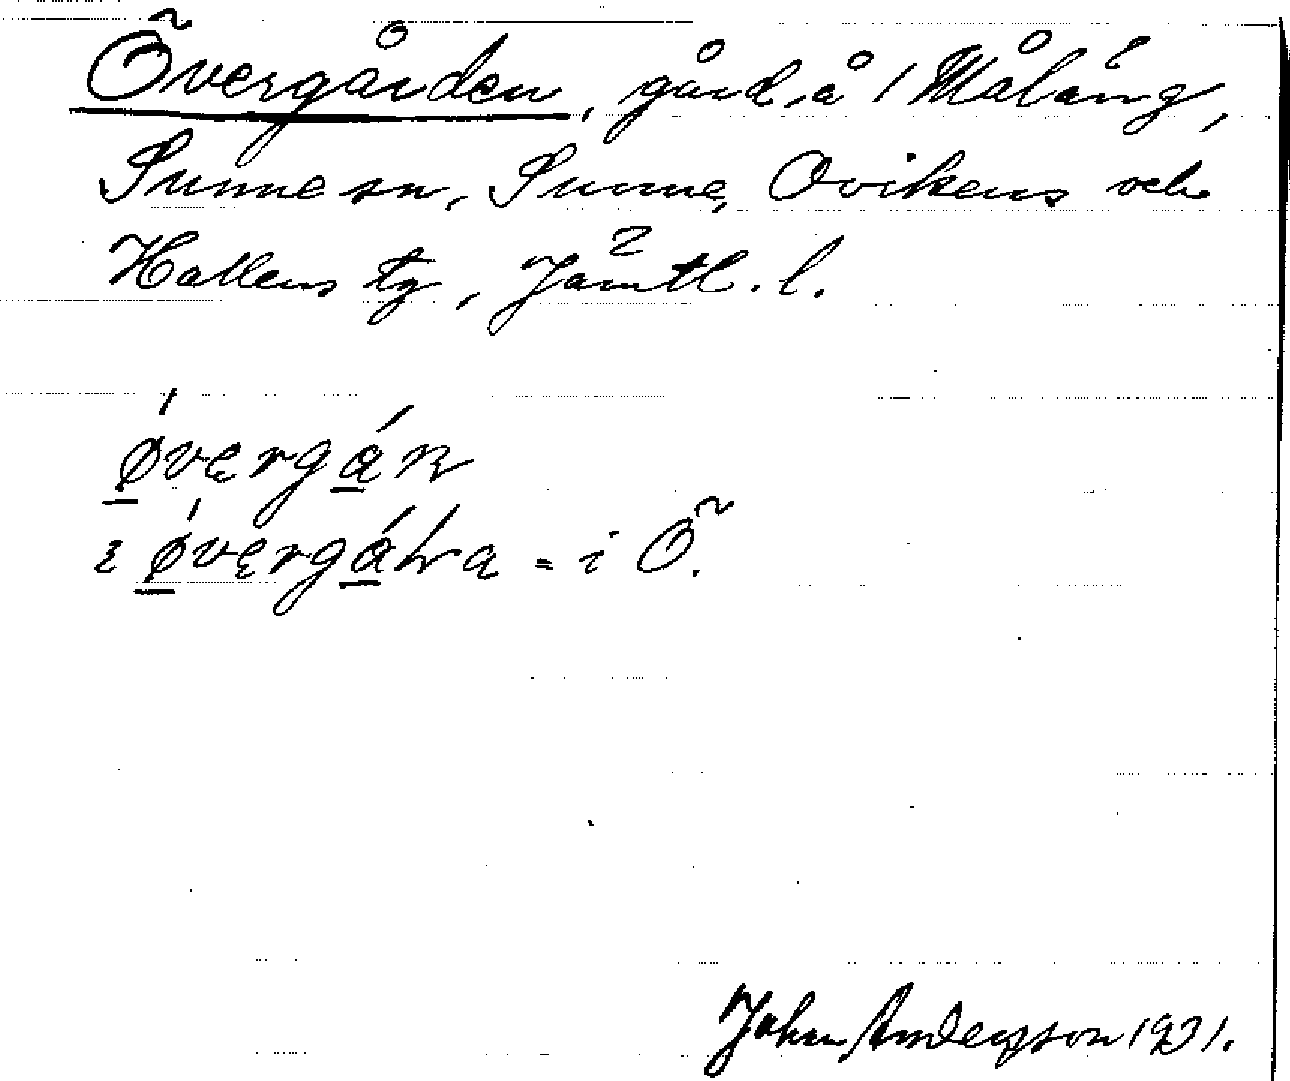 Övergården, gård, å 1 Målång,
Sunne sn, Sunne, Ovikens och
Hallens tg, Jämtl. l.
øvergán
ɩ øvergáƚɑ = i Ö.
John Anderson 1921.